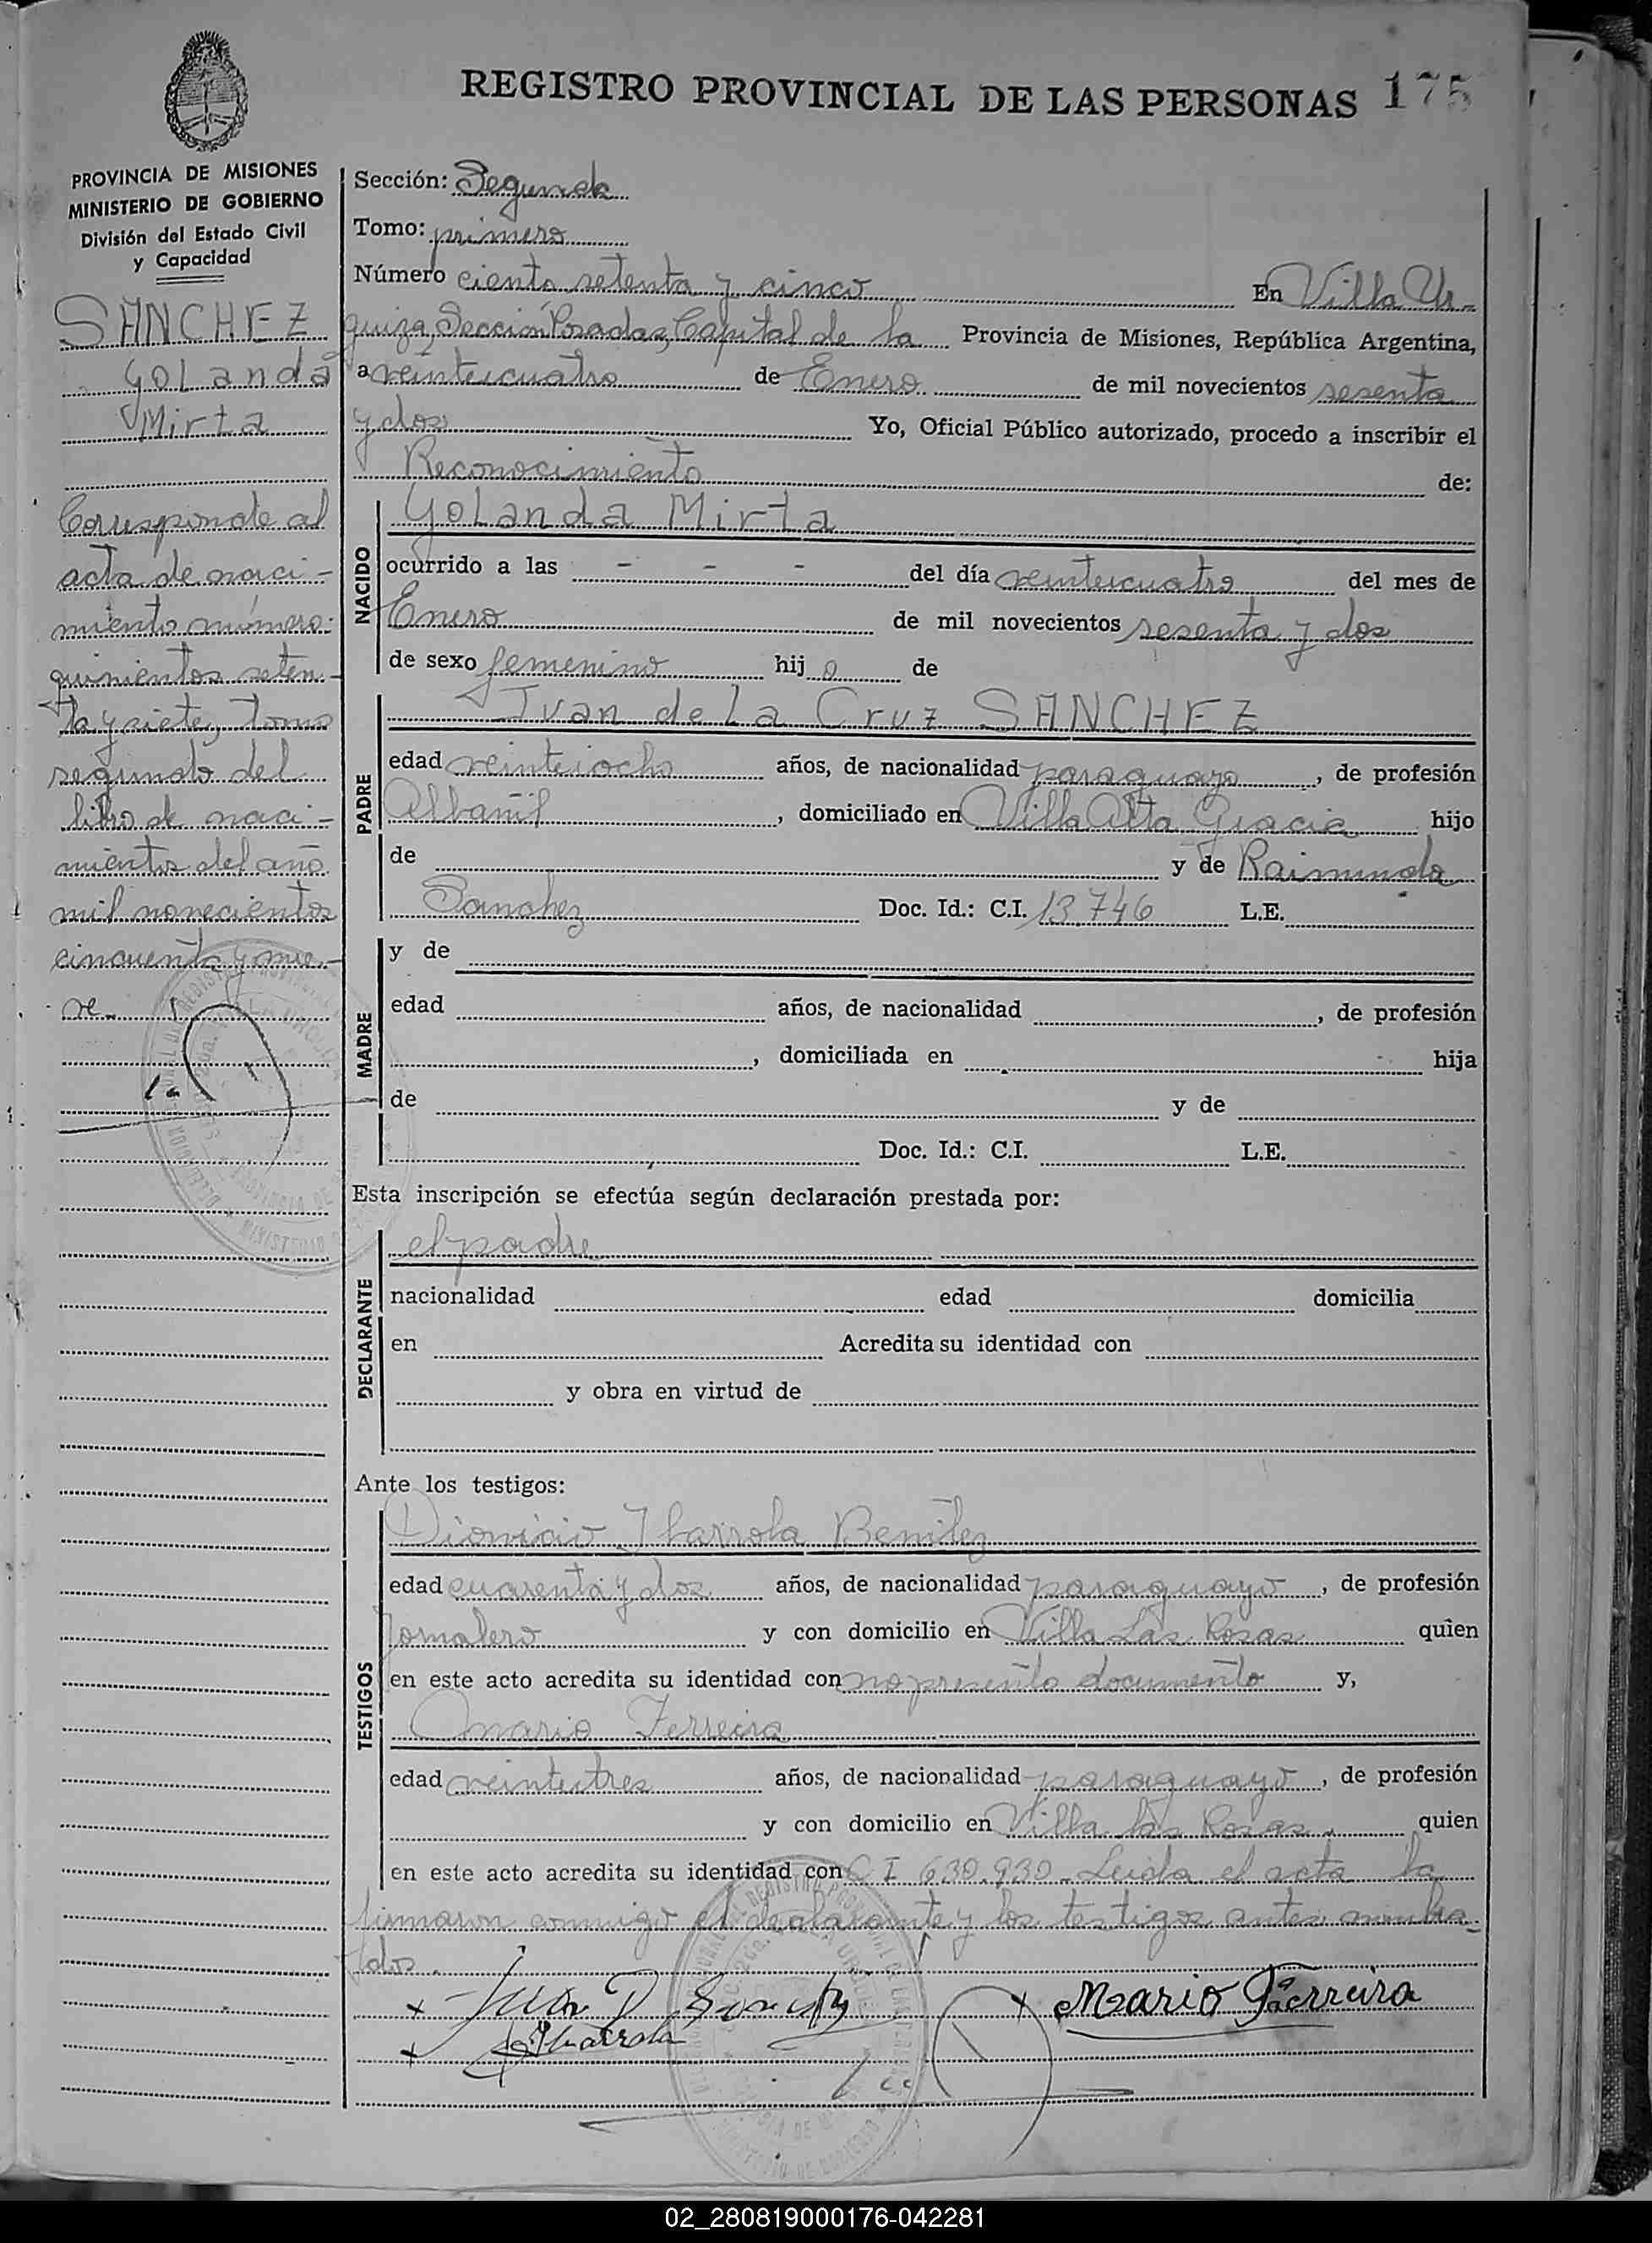 REGISTRO PROVINCIAL DE LAS PERSONAS 175
PROVINCIA DE MISIONES
MINISTERIO DE GOBIERNO
División del Estado Civil
y Capacidad
SANCHEZ
Yolanda
Mirta
Corresponde al
acta de naci-
miento número:
quinientos seten-
ta y siete, tomo
segundo del
libro de naci-
mientos del año
mil novecientos
cincuenta y nue-
ve.
Sección: Segunda
Tomo: primero
Número ciento setenta y cinco En Villa Ur-
quiza, Sección Posadas, Capital de la Provincia de Misiones, República Argentina,
a veinticuatro de Enero de mil novecientos sesenta
y dos Yo, Oficial Público autorizado, procedo a inscribir el
Reconocimiento de:
NACIDO
Yolanda Mirta
ocurrido a las - - - del día veinticuatro del mes de
Enero de mil novecientos sesenta y dos
de sexo femenino hij a de
PADRE
Juan de La Cruz SANCHEZ
edad veintiocho años, de nacionalidad paraguayo, de profesión
Albañil, domiciliado en Villa Alta Gracia hijo
de y de Raimunda
Sanchez Doc. Id.: C.I. 13.746 L.E.
MADRE
y de
edad años, de nacionalidad , de profesión
, domiciliada en hija
de y de
Doc. Id.: C.I. L.E.
Esta inscripción se efectúa según declaración prestada por:
DECLARANTE
el padre
nacionalidad edad domicilia
en Acredita su identidad con
y obra en virtud de
Ante los testigos:
TESTIGOS
Dionicio Ibarrola Benitez
edad cuarenta y dos años, de nacionalidad paraguayo, de profesión
Jornalero y con domicilio en Villa Las Rosas quien
en este acto acredita su identidad con no presento documento y,
Mario Ferreira
edad veintitres años, de nacionalidad paraguayo, de profesión
y con domicilio en Villa las Rosas. quien
en este acto acredita su identidad con C I 630.930. Leida el acta la
firmaron conmigo el declarante y los testigos antes nombra-
dos.
Juan D Sanchez
Mario Ferreira
Ibarrola
02_280819000176-042281